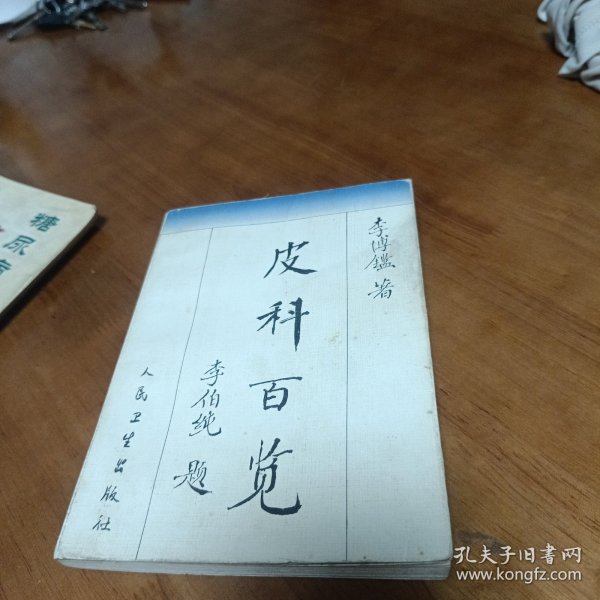 李博鑑 著
皮科百览
李伯纯 题
人民卫生出版社
糖尿病
孔夫子旧书网
www.kongfz.com